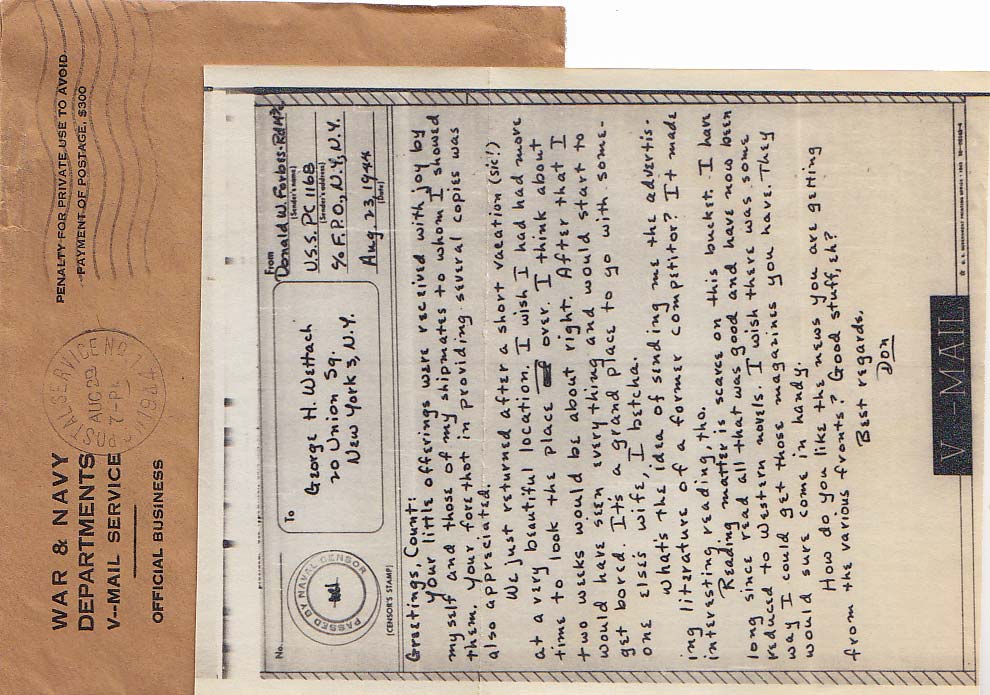 WAR & NAVY
DEPARTMENTS
V-MAIL SERVICE
OFFICIAL BUSINESS
PENALTY FOR PRIVATE USE TO AVOID
PAYMENT OF POSTAGE, $300
POSTAL SERVICE NO.
AUG 29
7-PM
1944
No.
PASSED BY NAVAL CENSOR
(CENSOR'S STAMP)
To
George H. Wettach
20 Union Sq.
New York 3, N.Y.
From
Donald W. Forbes-
(Sender's name)
U.S.S. PC 1168
(Sender's address)
c/o F.P.O., N.Y., N.Y.
Aug. 23, 1944
(Date)
Greetings, Count:
Your little offerings were received with joy by
myself and those of my shipmates to whom I showed
them. Your forethot in providing several copies was
also appreciated.
We just returned after a short vacation (sic!)
at a very beautiful location. I wish I had had more
time to look the place over. I think about
two weeks would be about right. After that I
would have seen everything and would start to
get bored. It's a grand place to go with some-
one else's wife, I betcha.
What's the idea of sending me the advertis-
ing literature of a former competitor? It made
interesting reading, tho.
Reading matter is scarce on this bucket. I have
long since read all that was good and have now been
reduced to Western novels. I wish there was some
way I could get those magazines you have. They
would sure come in handy.
How do you like the news you are getting
from the various fronts? Good stuff, eh?
Best regards,
Don
V-MAIL